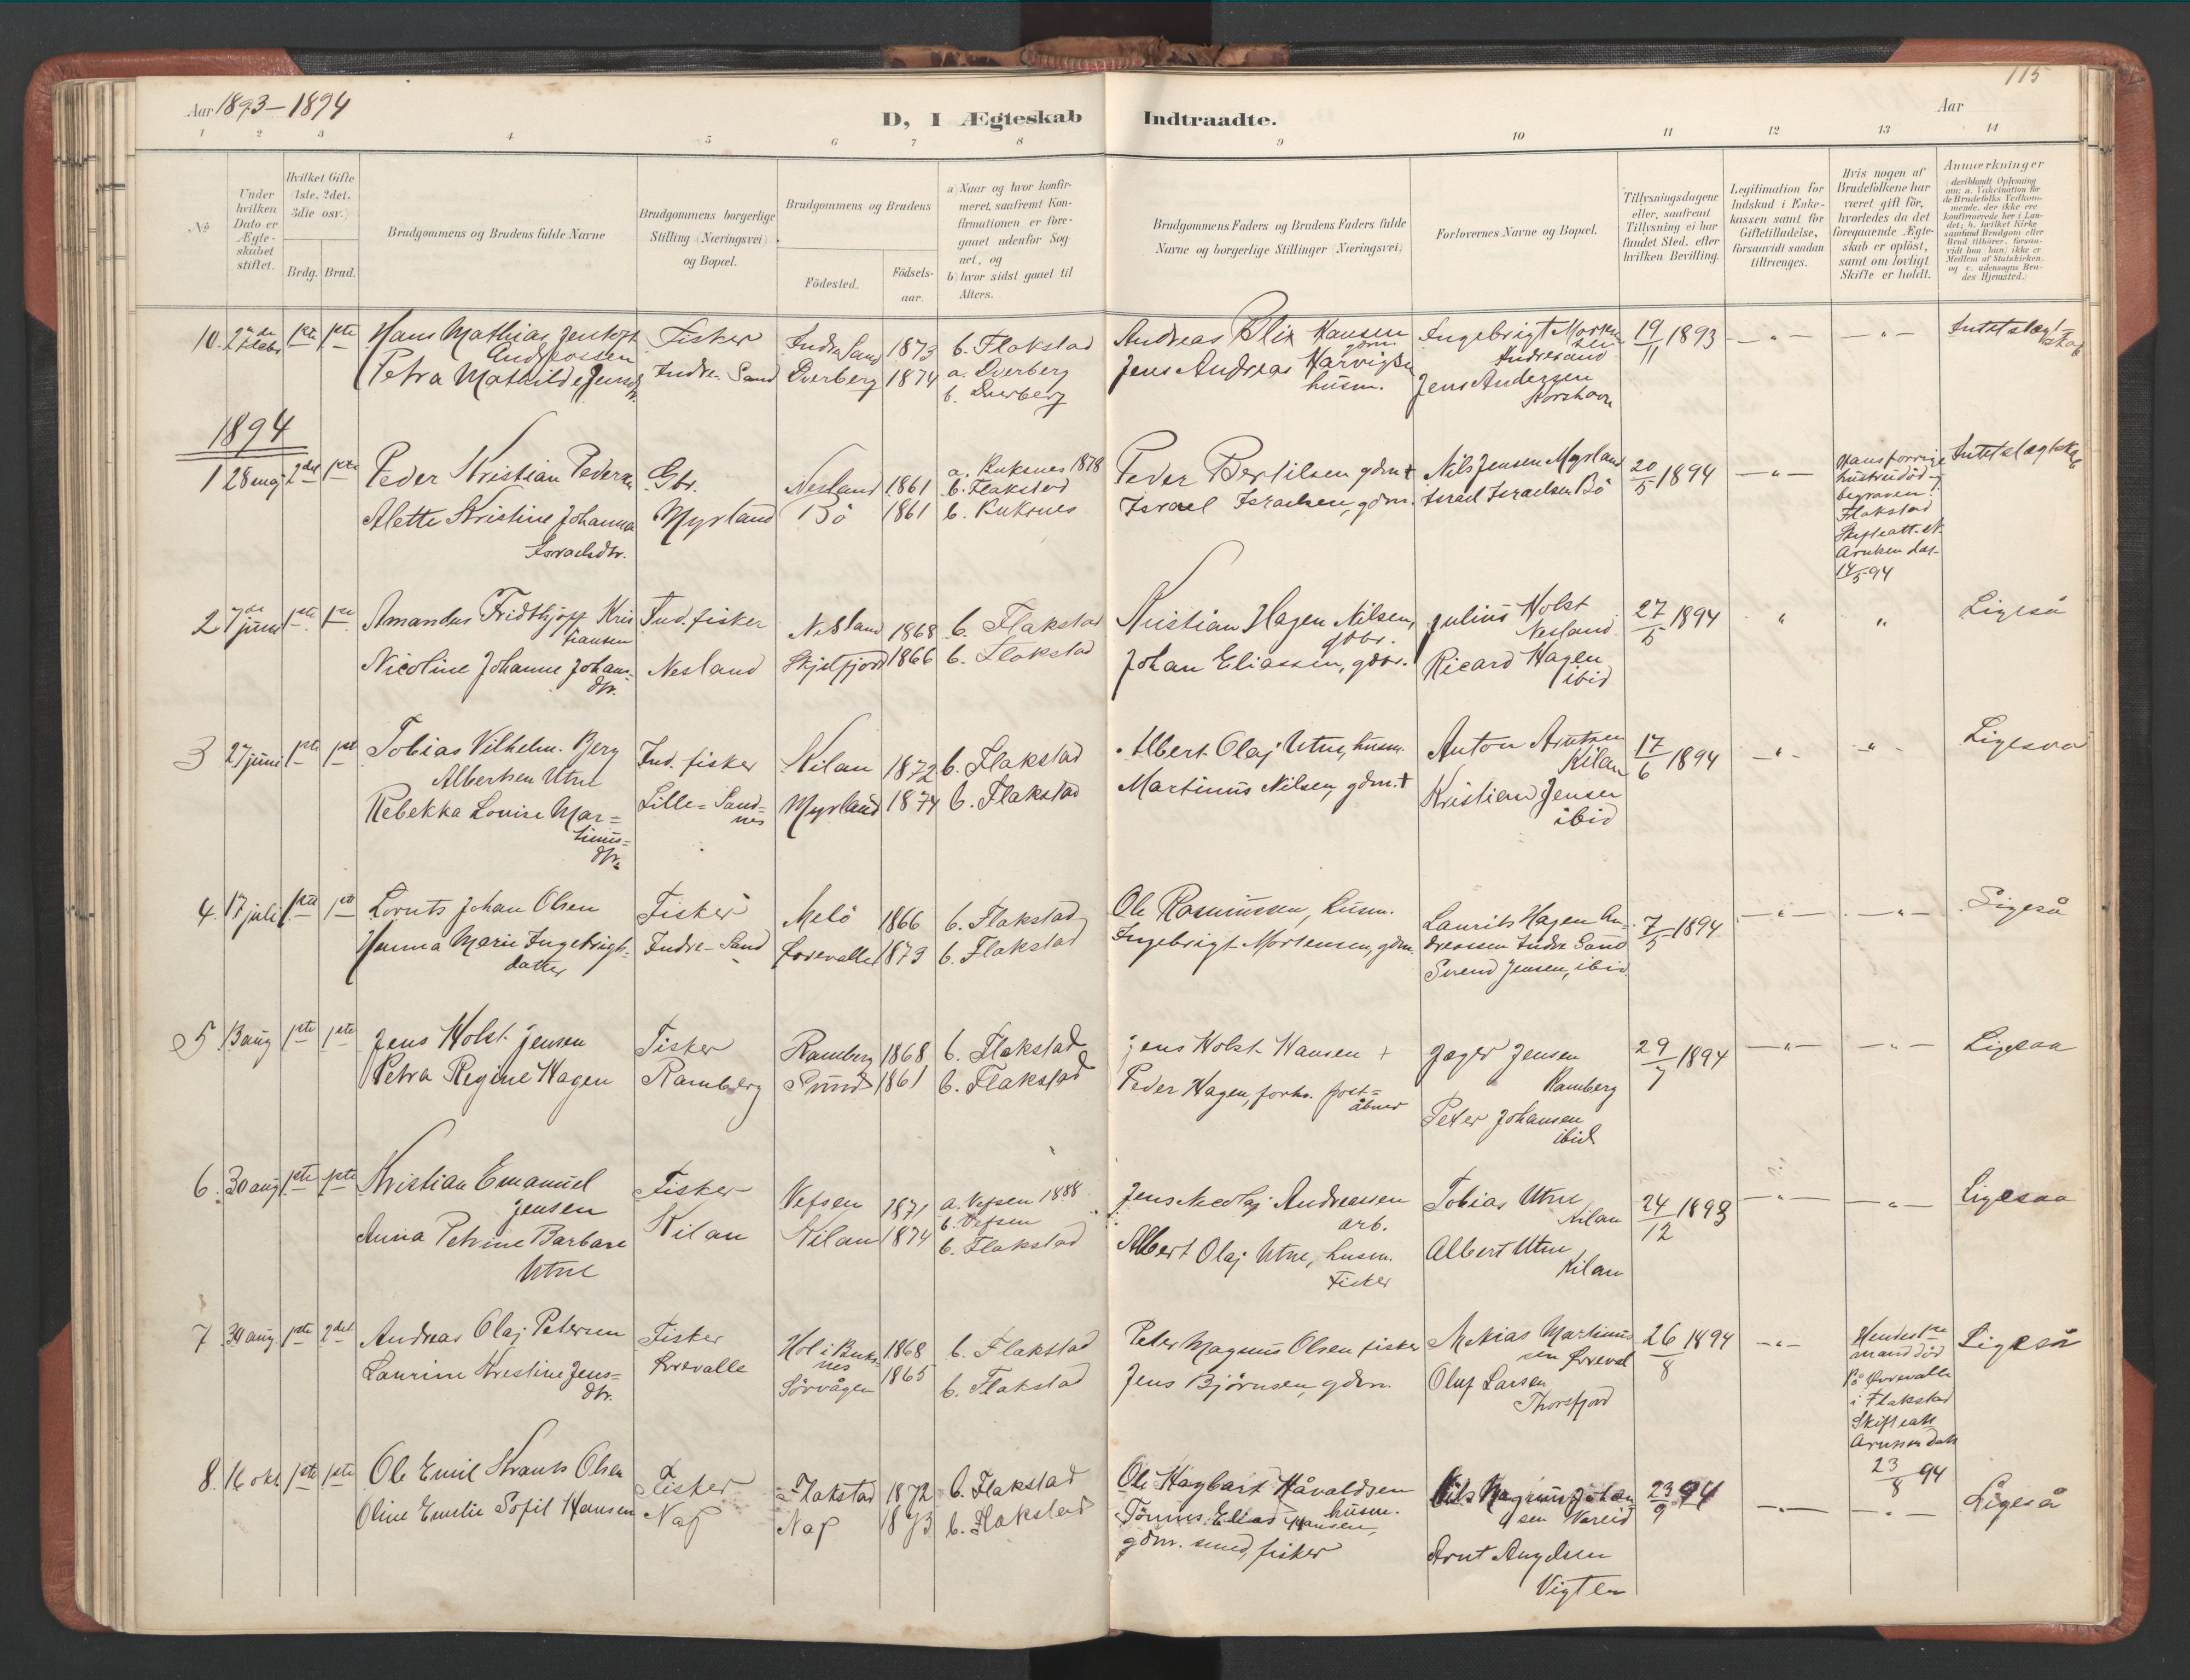 115
Aar 1893–1894
D, I Ægteskab Indtraadte.
Aar
1 2 3 4 5 6 7 8 9 10 11 12 13 14
No
Under hvilken Dato er Ægteskabet stiftet.
Hvilket Gifte (1ste, 2det, 3die osv.)
Brdg. Brud.
Brudgommens og Brudens fulde Navne
Brudgommens borgerlige Stilling (Næringsvei) og Bopæl.
Brudgommens og Brudens
Födested.
Födsels-aar.
a) Naar og hvor konfirmeret, saafremt Konfirmationen er foregaaet udenfor Sognet, og
b) hvor sidst gaaet til Alters.
Brudgommens Faders og Brudens Faders fulde Navne og borgerlige Stillinger (Næringsvei)
Forlovernes Navne og Bopæl.
Tillysningsdagene eller, saafremt Tillysning ei har fundet Sted, efter hvilken Bevilling.
Legitimation for Indskud i Enkekassen samt for Giftetilladelse, forsaavidt saadan tiltrænges.
Hvis nogen af Brudefolkene har været gift för, hvorledes da det foregaaende Ægteskab er oplöst, samt om lovligt Skifte er holdt.
Anmærkninger
(deriblandt Oplysning om: a. Vakcination for de Brudefolks Vedkommende, der ikke ere konfirmerede her i Landet; b. hvilket Kirkesamfund Brudgom eller Brud tilhörer, forsaavidt han (hun) ikke er Medlem af Statskirken, og c. udensogns Brudes Hjemsted.)
10. 2den debr 1ste 1ste Hans Mathias Jentoft Andreassen Fisker Indre Sand 1873 b. Flakstad Andreas Blix Hansen gdm. Ingebrigt Mortensen Indresand 19/11 1893 — " — — " — Intet slægtskab
Petra Mathilde Jensdtr. Indre-Sand Dverberg 1874 a. Dverberg b. Dverberg Jens Andreas Harvigsen husm. Jens Andersen
1894
1 28 maj 2det 1ste Peder Kristian Pedersen Gbr. Nesland 1861 a. Buksnes 1878 b. Flakstad Peder Bertilsen gdm + Nils Jensen Myrland 20/5 1894 — " — Hans forrige hustru död og begraven i Flakstad Skifteatt. 14/5 94 Intet slægtskab
Alette Kristine Johanna Israelsdtr. Myrland Bö 1861 b. Buksnes Israel Israelsen, gdm. Israel Israelsen Bö
2 7de juni 1ste 1ste Amandus Fridthjof Kristiansen Ind. fisker Nesland 1868 b. Flakstad Kristian Hagen Nilsen, gbr. Julius Holst Nesland 27/5 1894 " " Ligeså
Nicoline Johanne Johansdtr. Nesland Skjelfjord 1866 b. Flakstad Johan Eliassen, gdbr. Ricard Hagen ibid
3 27 juni 1ste 1ste Tobias Vilhelm Berg Albertsen Utne Ind. fisker Kilan 1872 b. Flakstad Albert Olaj Utne, husm. Anton Arntsen Kilan 17/6 1894 — " — — " — Ligesaa
Rebekka Lovise Martinusdtr. Lille-Sandnes Myrland 1874 b. Flakstad Martinus Nilsen, gdm. + Kristian Jensen ibid
4. 17 juli 1ste 1ste Loruts Johan Olsen Fisker Melö 1866 b. Flakstad Ole Rasmussen, husm. Laurits Hagen Andreassen Indre Sand 7/5 1894 — " — — " — Ligeså
Hanna Marie Ingebrigtdatter Indre-Sand Örevalle 1873 b. Flakstad Ingebrigt Mortensen, gdm. Svend Jensen, ibid
5 13 aug 1ste 1ste Jens Holst Jensen Fisker Ramberg 1868 b. Flakstad Jens Holst Hansen + Jæger Jensen Ramberg 29/7 1894 — " — — " — Ligesaa
Petra Regine Hagen Ramberg Sund 1861 b. Flakstad Peder Hagen, forhv. poståbner Peter Johansen ibid
6. 30 aug 1ste 1ste Kristian Emanuel Jensen Fisker Vefsen 1871 a. Vefsen 1888 b. Vefsen Jens Andreassen arb. Tobias Utne Kilan 24/12 1893 — " — — " — Ligesaa
Anna Petrine Barbara Utne Kilan Kilan 1874 b. Flakstad Albert Olaj Utne, husm. Fisker Albert Utne Kilan
7 30 aug. 1ste 2det Andreas Olaj Petersen Fisker Hol i Buksnes 1868 b. Flakstad Peter Magnus Olsen fisker Mekias Martinussen Örevol 26/8 1894 — " — Hendes 1ste mand död på Örevalle i Flakstad Skifteatt. 23/8 94 Ligeså
Laurine Kristine Jensdtr. Örevalle Sörvågen 1865 b. Flakstad Jens Björnsen, gdm. Oluf Larsen Thorsfjord
8. 16 okt. 1ste 1ste Ole Emil Krants Olsen Fisker Flakstad 1872 b. Flakstad Ole Hagbart Håvaldsen husm. Nils Magnus Johansen Vareid 23/9 94 — " — — " — Ligeså
Oline Emilie Sofie Hansen Nap Nap 1873 b. Flakstad Tönnes Elias Hansen, gdm. smed, fisker Arnt Angelsen Vigten